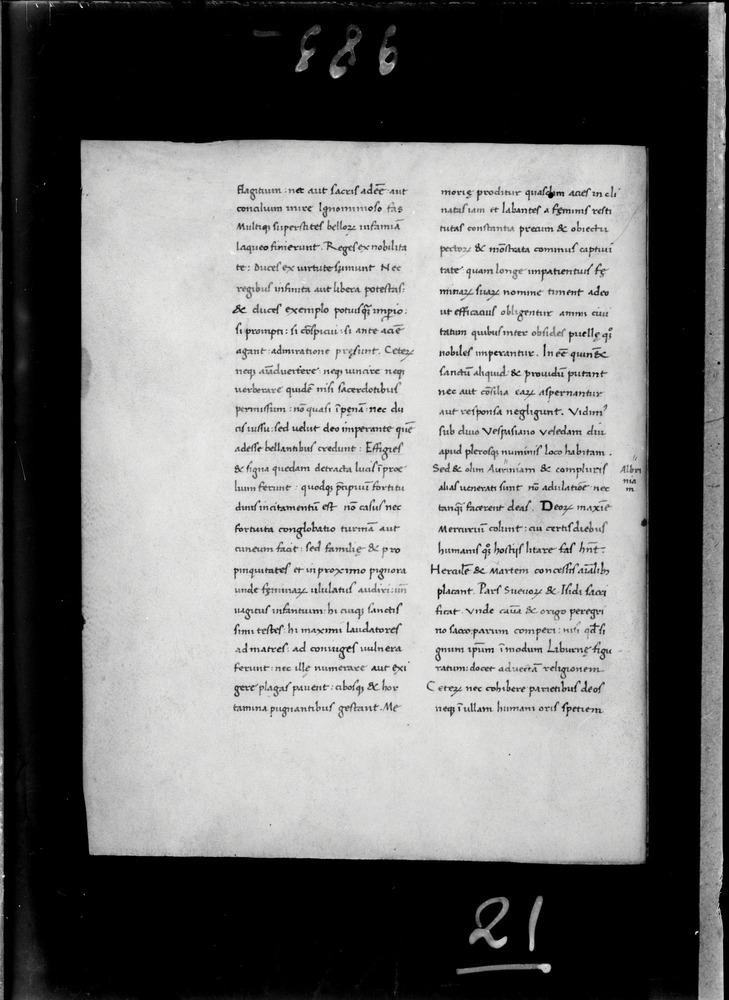 983
flagitium: nec aut sacris adeē aut
concilium inire Ignominioso fas
Multiqꝫ superstites belloꝝ infamiā
laqueo finierunt. Reges ex nobilita
te: Duces ex uirtute sumunt Nec
regibus infinita aut libera potestas:
& duces exemplo potiusqꝫ imꝑio:
si prompti: si cōspicui: si ante aciē
agant: admiratione pręsunt. Ceteꝝ
neqꝫ aīaduertere: neqꝫ uincire neqꝫ
uerberare quidē nisi sacerdotibus
permissum: nō quasi ī penā: nec du
cis iussu: sed uelut deo imperante quē
adesse bellantibus credunt: Effigies
& signa quedam detracta lucis ī proe
lium ferunt: quodqꝫ p̄cipuū fortitu
dinis incitamentū est nō casus nec
fortuita conglobatio turmā aut
cuneum facit: sed familię & pro
pinquitates et in proximo pignora
unde fęminaꝝ ululatus audiri: un̄
uagitus infantium: hi cuiqꝫ sanctis
simi testes: hi maximi laudatores
ad matres: ad coniuges uulnera
ferunt: nec ille numerare aut exi
gere plagas pauent: cibosqꝫ & hor
tamina pugnantibus gestant. Me
morię proditur quasdam acies in cli
natas iam et labantes a fęminis resti
tutas constantia precum & obiectu
pectoꝝ & mōstrata comminus captiui
tate quam longe impatientius fę
minaꝝ suaꝝ nomine timent adeo
ut efficacius obligentur animi ciui
tatum quibus inter obsides puellę qꝫ
nobiles imperantur. In eē quinēt
sanctū aliquid & prouidū putant
nec aut cōsilia eaꝝ aspernantur
aut responsa negligunt. Vidim᾽
sub diuo Vespasiano veledam diu
apud plerosqꝫ numinis loco habitam.
Sed & olim Auriniam & compluris
alias uenerati sunt nō adulatiōe nec
tanqꝫ facerent deas. Deoꝝ maxīe
Mercuriū colunt: cui certis diebus
humanis qꝫ hostijs litare fas hn̄t.
Herculē & Martem concessis aīalibꝫ
placant. Pars Sueuoꝝ & Isidi sacri
ficat. Vnde cāua & origo peregri
no sacro parum comperi: nisi qđ si
gnum ipm̄ ī modum Liburnę figu
ratum: docet aduectā religionem
Ceteꝝ nec cohibere parietibus deos
neqꝫ ī ullam humani oris speciem
Albri
nia
m
21